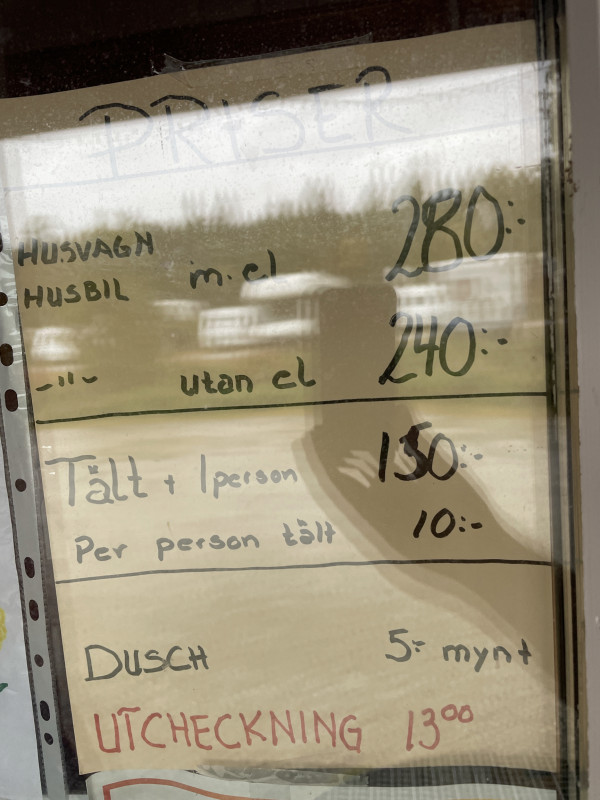 PRISER
HUSVAGN m. el 280:-
HUSBIL
-"- utan el 240:-
Tält + 1 person 150:-
Per person tält 10:-
DUSCH 5:- mynt
UTCHECKNING 13⁰⁰